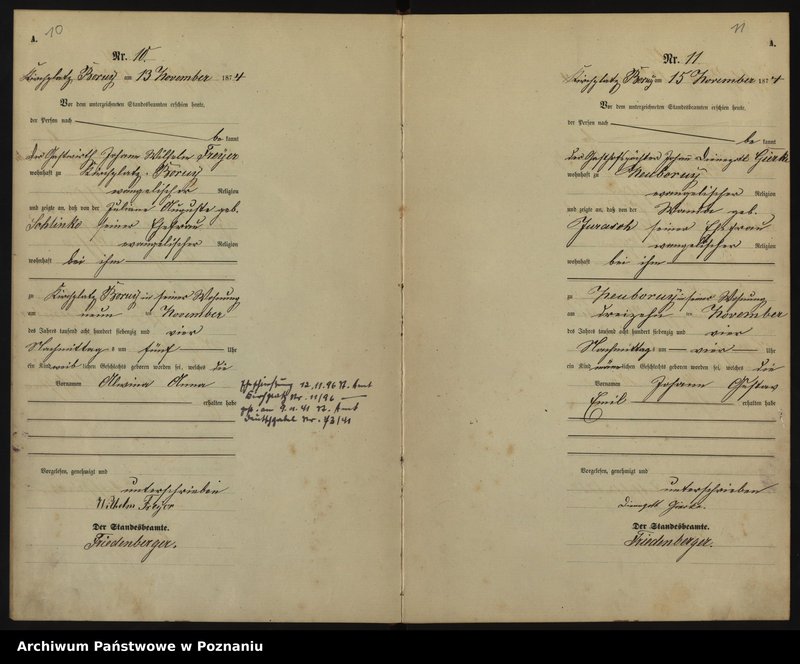 10
A.
Nr. 10.
Kirchplatz Boruy am 13 November 1874
Vor dem unterzeichneten Standesbeamten erschien heute,
der Person nach
be kannt
der Gastwirth Johann Wilhelm Freyer
wohnhaft zu Kirchplatz Boruy
evangelischer Religion
und zeigte an, daß von der Juliane Auguste geb.
Schlinke seiner Ehefrau
evangelischer Religion
wohnhaft bei ihm
zu Kirchplatz Boruy in seiner Wohnung
am neun ten November
des Jahres tausend acht hundert siebenzig und vier
Nachmittag s um fünf Uhr
ein Kind weib lichen Geschlechts geboren worden sei, welches die
Vornamen Alwina Anna
erhalten habe
Eheschließung 12.11.96 St. Amt
Kirchplatz Nr. 11/96
gest. am 9.11.41 St. Amt
Nr. 73/41
Vorgelesen, genehmigt und
unterschrieben
Wilhelm Freyer
Der Standesbeamte.
Friedenberger.
11
A.
Nr. 11.
Kirchplatz Boruy am 15 November 1874
Vor dem unterzeichneten Standesbeamten erschien heute,
der Person nach
be kannt
der Gasthofspächter Johann Dienegott Gierke
wohnhaft zu Neuboruy
evangelischer Religion
und zeigte an, daß von der Wanda geb.
Jurasch seiner Ehefrau
evangelischer Religion
wohnhaft bei ihm
zu Neuboruy in seiner Wohnung
am dreizehn ten November
des Jahres tausend acht hundert siebenzig und vier
Nachmittag s um vier Uhr
ein Kind männ lichen Geschlechts geboren worden sei, welches die
Vornamen Johann Gustav
Emil erhalten habe
Vorgelesen, genehmigt und
unterschrieben
Dienegott Gierke.
Der Standesbeamte.
Friedenberger.
Archiwum Państwowe w Poznaniu